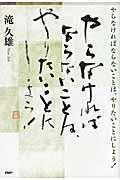 やらなければならないことは、やりたいことにしよう!
やらなければ
ならないことは、
やりたいことに
しよう!
滝 久雄
PHP